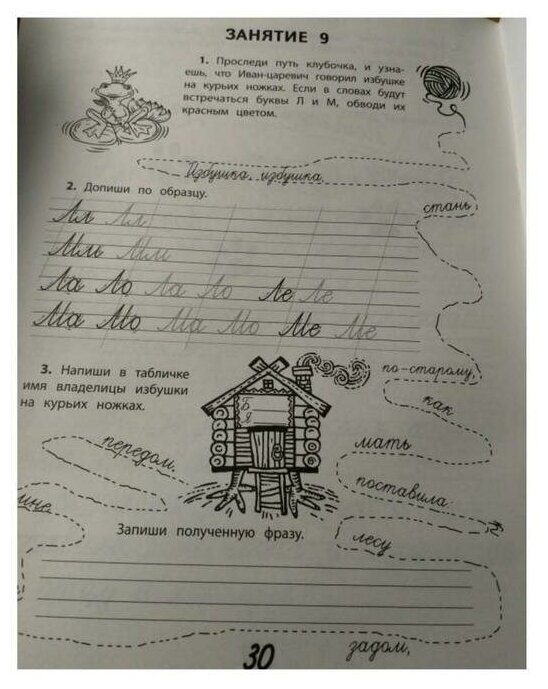 ЗАНЯТИЕ 9
1. Проследи путь клубочка, и узна-
ешь, что Иван-царевич говорил избушке
на курьих ножках. Если в словах будут
встречаться буквы Л и М, обводи их
красным цветом.
Избушка, избушка,
2. Допиши по образцу.
стань
Лл Лл
Мм Мм
Ла Ло Ла Ло Ле Ле
Ма Мо Ма Мо Ме Ме
3. Напиши в табличке
имя владелицы избушки
на курьих ножках.
по-старому,
как
Б
Я
мать
передом.
поставила
мне
Запиши полученную фразу.
лесу
задом,
30